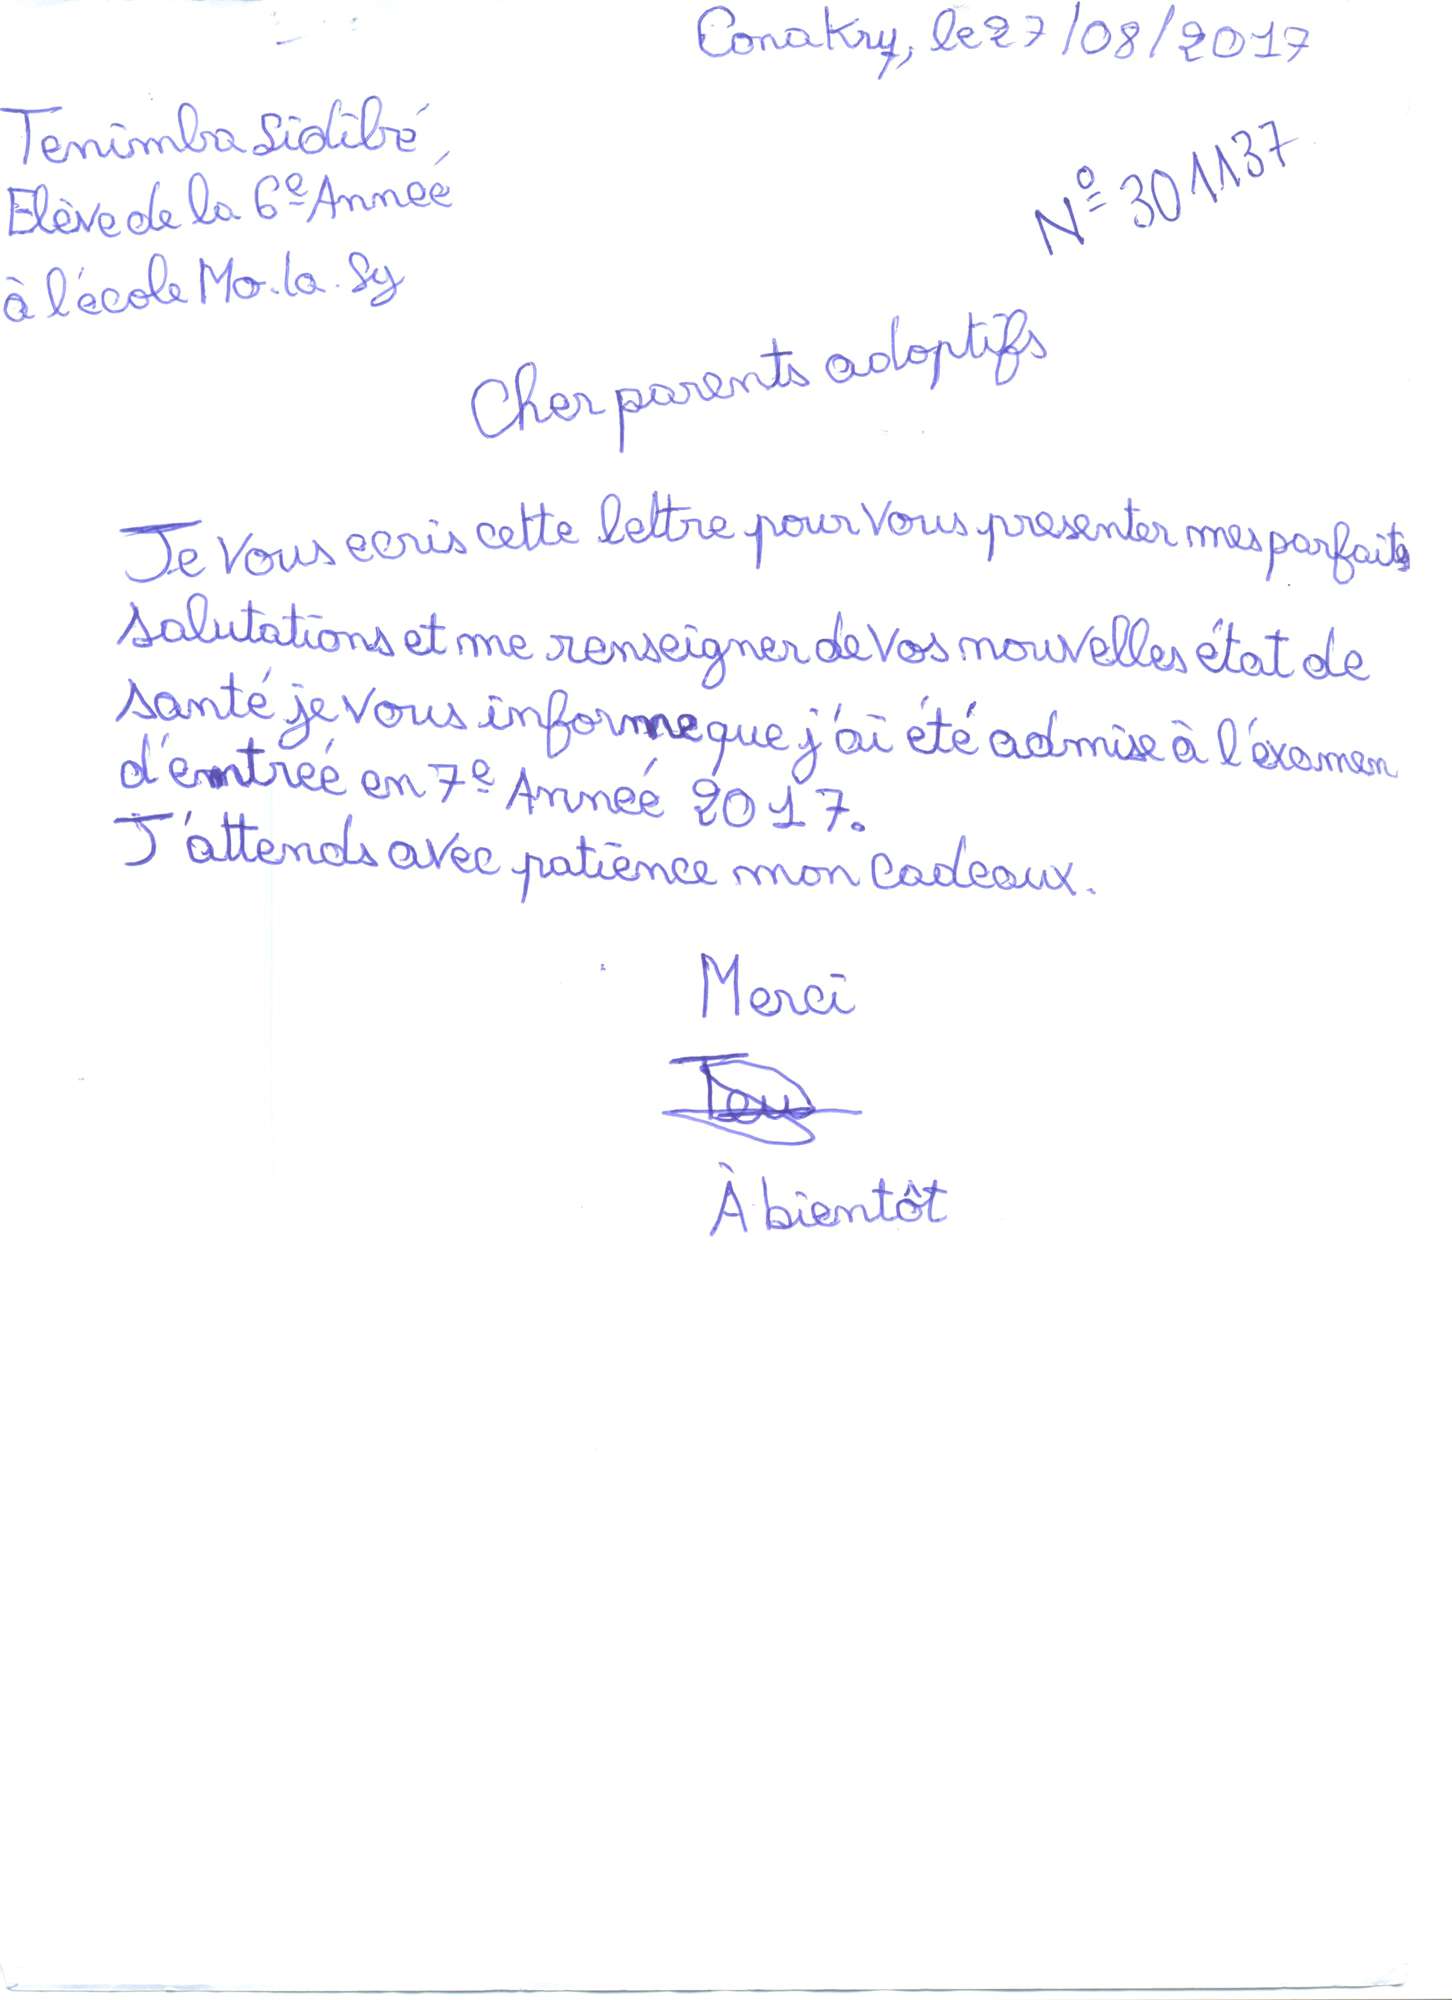 Conakry, le 27/08/2017
Tenimba Sidibé
Elève de la 6e Année
N° 301137
à l'école Mo.la.Sy
Cher parents adoptifs
Je vous ecris cette lettre pour vous presenter mes parfaits
salutations et me renseigner de vos nouvelles état de
santé je vous informe que j'ai été admise à l'éxamen
d'éntrée en 7e Année 2017.
J'attends avec patience mon cadeaux.
Merci
À bientôt